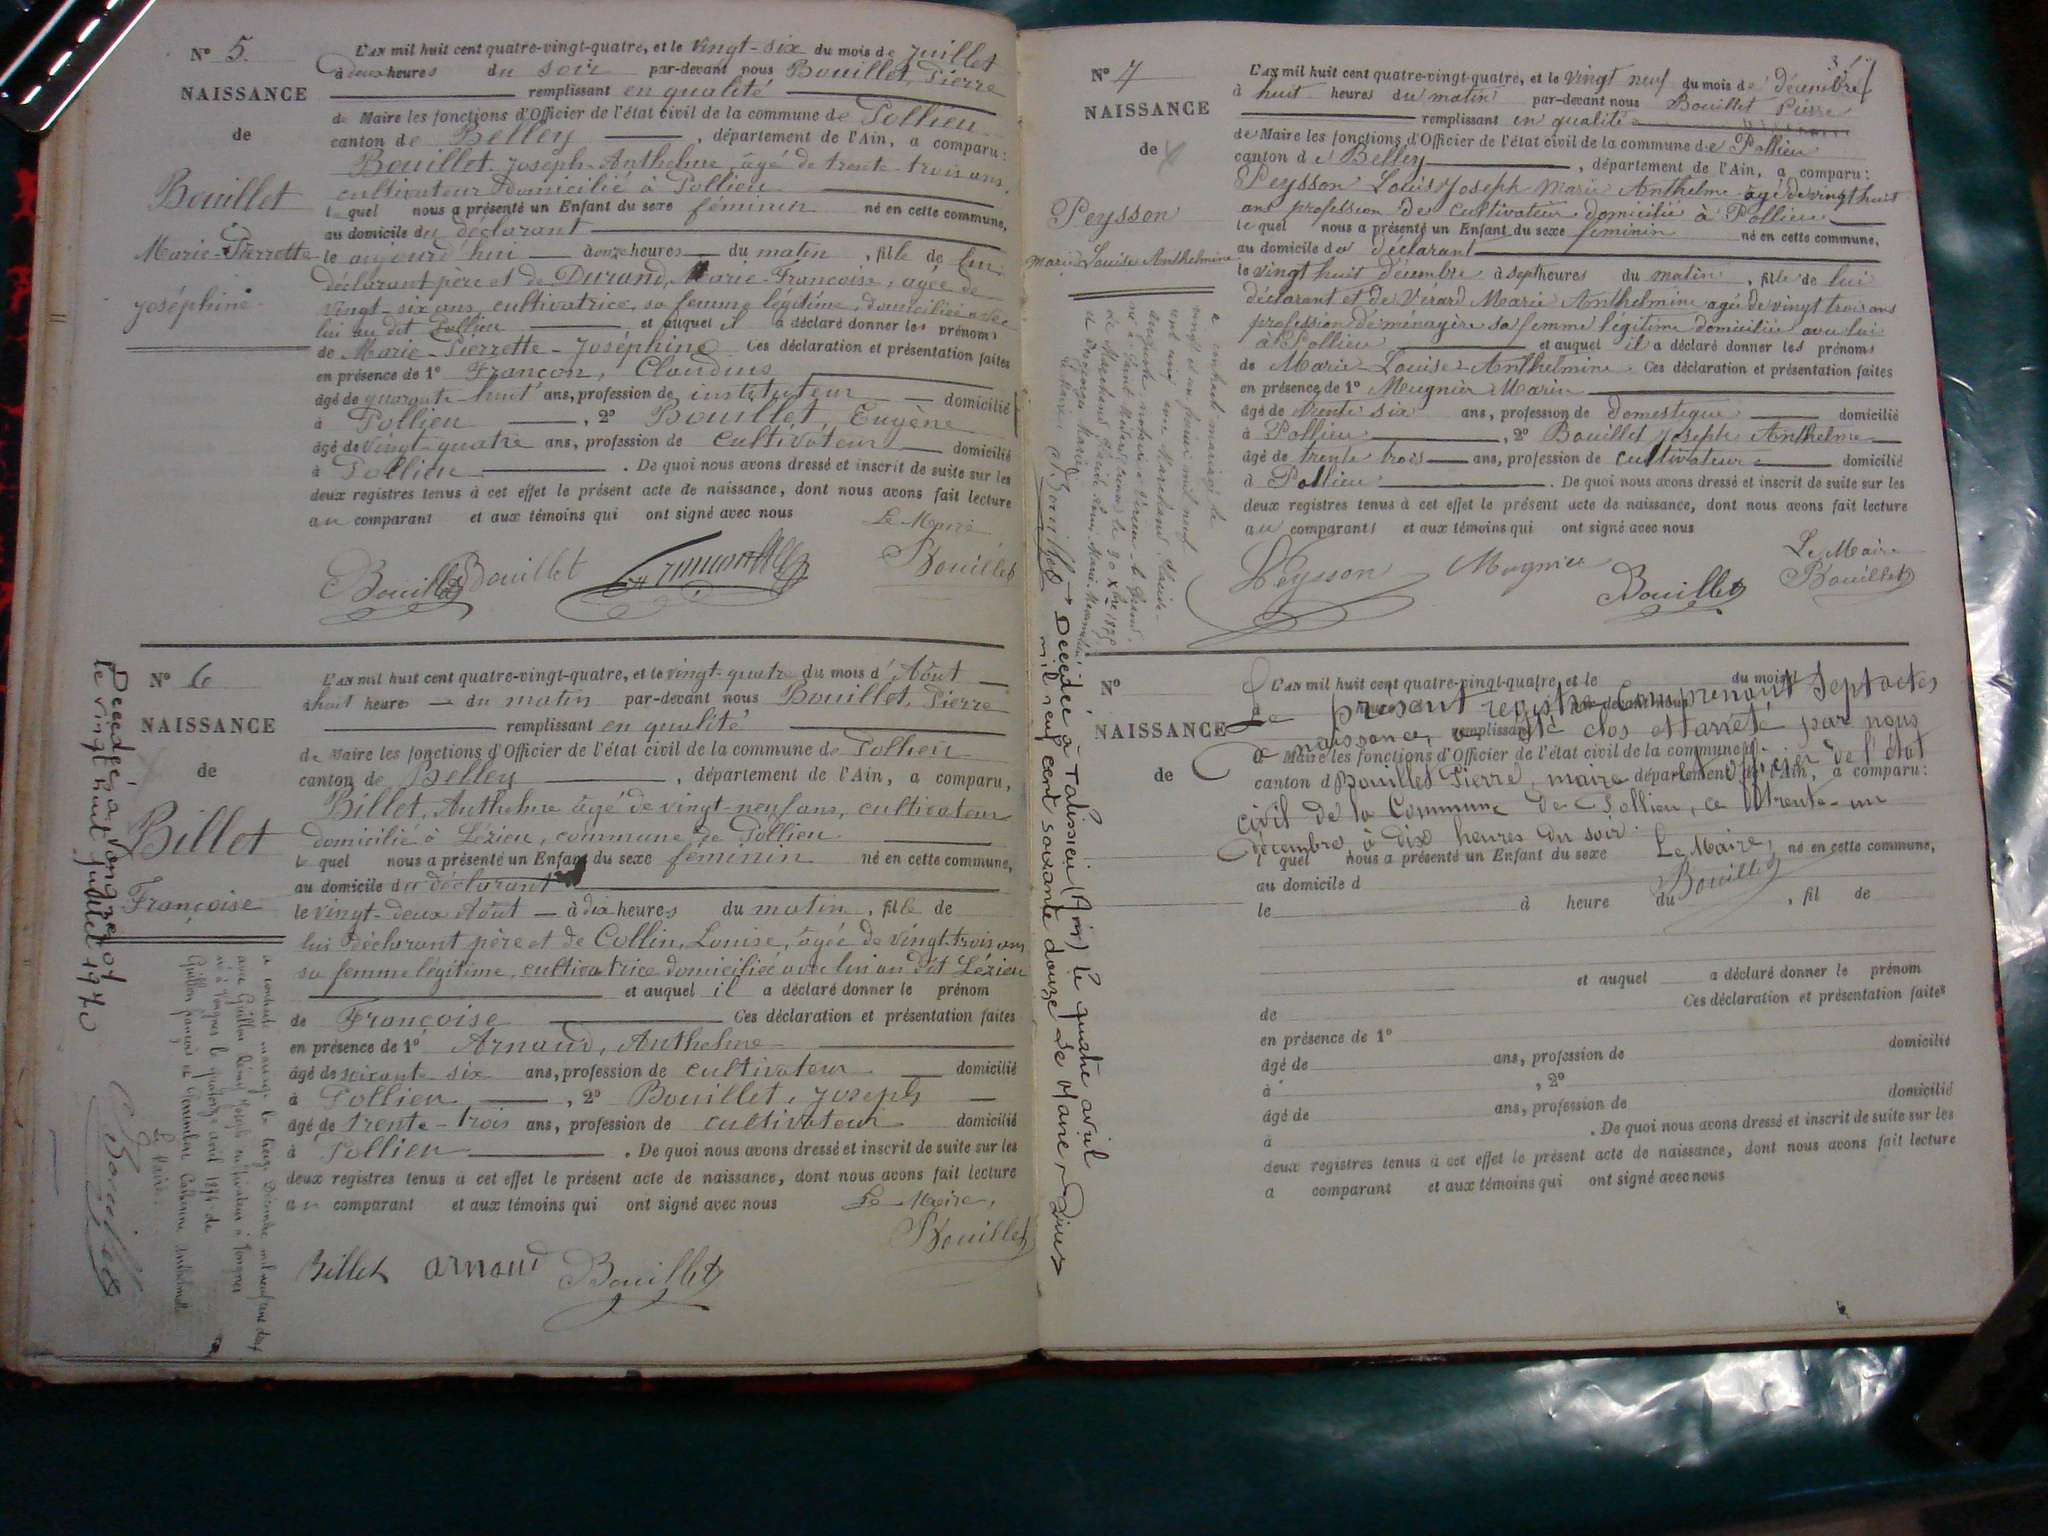 N° 5.
NAISSANCE
de
Bouillet
Marie-Pierrette
Joséphine
L'AN mil huit cent quatre-vingt-quatre, et le vingt-six du mois de Juillet
à deux heures du soir par-devant nous Bouillet, Pierre
remplissant en qualité
de Maire les fonctions d'Officier de l'état civil de la commune de Pollieu
canton de Belley, département de l'Ain, a comparu:
Bouillet Joseph-Anthelme, âgé de trente-trois ans,
cultivateur domicilié à Pollieu
lequel nous a présenté un Enfant du sexe féminin né en cette commune,
au domicile du déclarant
le aujourd'hui à onze heures du matin, fille de lui
déclarant père et de Durand, Marie-Françoise, agée de
vingt-six ans, cultivatrice, sa femme légitime, domiciliée avec
lui au dit Pollieu et auquel il a déclaré donner les prénoms
de Marie-Pierrette-Joséphine. Ces déclaration et présentation faites
en présence de 1° Françon, Claudius
âgé de quarante-huit ans, profession de instituteur domicilié
à Pollieu, 2° Bouillet, Eugène
âgé de vingt-quatre ans, profession de cultivateur domicilié
à Pollieu. De quoi nous avons dressé et inscrit de suite sur les
deux registres tenus à cet effet le présent acte de naissance, dont nous avons fait lecture
au comparant et aux témoins qui ont signé avec nous
Le Maire
Bouillet Bouillet Françon Bouillet
N° 6
NAISSANCE
de
Billet
Françoise
L'AN mil huit cent quatre-vingt-quatre, et le vingt-quatre du mois d'Août
à huit heures du matin par-devant nous Bouillet, Pierre
remplissant en qualité
de Maire les fonctions d'Officier de l'état civil de la commune de Pollieu
canton de Belley, département de l'Ain, a comparu,
Billet, Anthelme âgé de vingt-neuf ans, cultivateur
domicilié à Lézieu, commune de Pollieu
lequel nous a présenté un Enfant du sexe féminin né en cette commune,
au domicile du déclarant
le vingt-deux Août à dix heures du matin, fille de
lui déclarant père et de Collin, Louise, âgée de vingt-trois ans,
sa femme légitime, cultivatrice domiciliée avec lui au dit Lézieu
et auquel il a déclaré donner le prénom
de Françoise Ces déclaration et présentation faites
en présence de 1° Arnaud, Anthelme
âgé de soixante-six ans, profession de cultivateur domicilié
à Pollieu, 2° Bouillet, Joseph
âgé de trente-trois ans, profession de cultivateur domicilié
à Pollieu. De quoi nous avons dressé et inscrit de suite sur les
deux registres tenus à cet effet le présent acte de naissance, dont nous avons fait lecture
au comparant et aux témoins qui ont signé avec nous
Le Maire,
Bouillet
Billet arnaud Bouillet
Decedée à Vongnes
le vingt huit juillet 1970
a contracté mariage le treize Décembre mil neuf cent
avec Guillon Rémy Joseph cultivateur à Vongnes
né à Vongnes le quatorze avril 1874 de
Guillon françois et
Le Maire.
Bouillet
N° 7
NAISSANCE
de
Peysson
Marie Louise Anthelmine
L'AN mil huit cent quatre-vingt-quatre, et le vingt neuf du mois de décembre
à huit heures du matin par-devant nous Bouillet Pierre
remplissant en qualité
de Maire les fonctions d'Officier de l'état civil de la commune de Pollieu
canton de Belley, département de l'Ain, a comparu:
Peysson Louis Joseph Marie Anthelme âgé de vingt huit
ans profession de cultivateur domicilié à Pollieu
lequel nous a présenté un Enfant du sexe feminin né en cette commune,
au domicile du déclarant
le vingt huit décembre à sept heures du matin, fille de lui
déclarant et de Vérard Marie Anthelmine agée de vingt trois ans
profession de ménagère sa femme légitime domiciliée avec lui
à Pollieu et auquel il a déclaré donner les prénoms
de Marie Louise Anthelmine. Ces déclaration et présentation faites
en présence de 1° Mugnier Marin
âgé de trente six ans, profession de domestique domicilié
à Pollieu, 2° Bouillet Joseph Anthelme
âgé de trente trois ans, profession de cultivateur domicilié
à Pollieu. De quoi nous avons dressé et inscrit de suite sur les
deux registres tenus à cet effet le présent acte de naissance, dont nous avons fait lecture
au comparant et aux témoins qui ont signé avec nous
Le Maire
Peysson Mugnier Bouillet Bouillet
a contracté mariage le
vingt et un
cent cinq avec Marchand Claude
Auguste, notaire à
le 30 Xbre 1875
de Marchand
Le Maire
Decedée à Talissieu (Ain) le quatre avril
mil neuf cent soixante douze Le Maire,
N°
NAISSANCE
de
L'AN mil huit cent quatre-vingt-quatre, et le du mois
Le présent registre comprenant sept actes
de naissance, a été clos et arrêté par nous
Maire les fonctions d'Officier de l'état civil de la commune
canton d département de l'Ain, a comparu:
Bouillet Pierre, maire officier de l'état
civil de la Commune de Pollieu, ce trente-un
décembre, à dix heures du soir.
Le Maire,
Bouillet
quel nous a présenté un Enfant du sexe né en cette commune,
au domicile d
le à heure du, fil de
et auquel a déclaré donner le prénom
de Ces déclaration et présentation faites
en présence de 1°
âgé de ans, profession de domicilié
à, 2°
âgé de ans, profession de domicilié
à. De quoi nous avons dressé et inscrit de suite sur les
deux registres tenus à cet effet le présent acte de naissance, dont nous avons fait lecture
a comparant et aux témoins qui ont signé avec nous